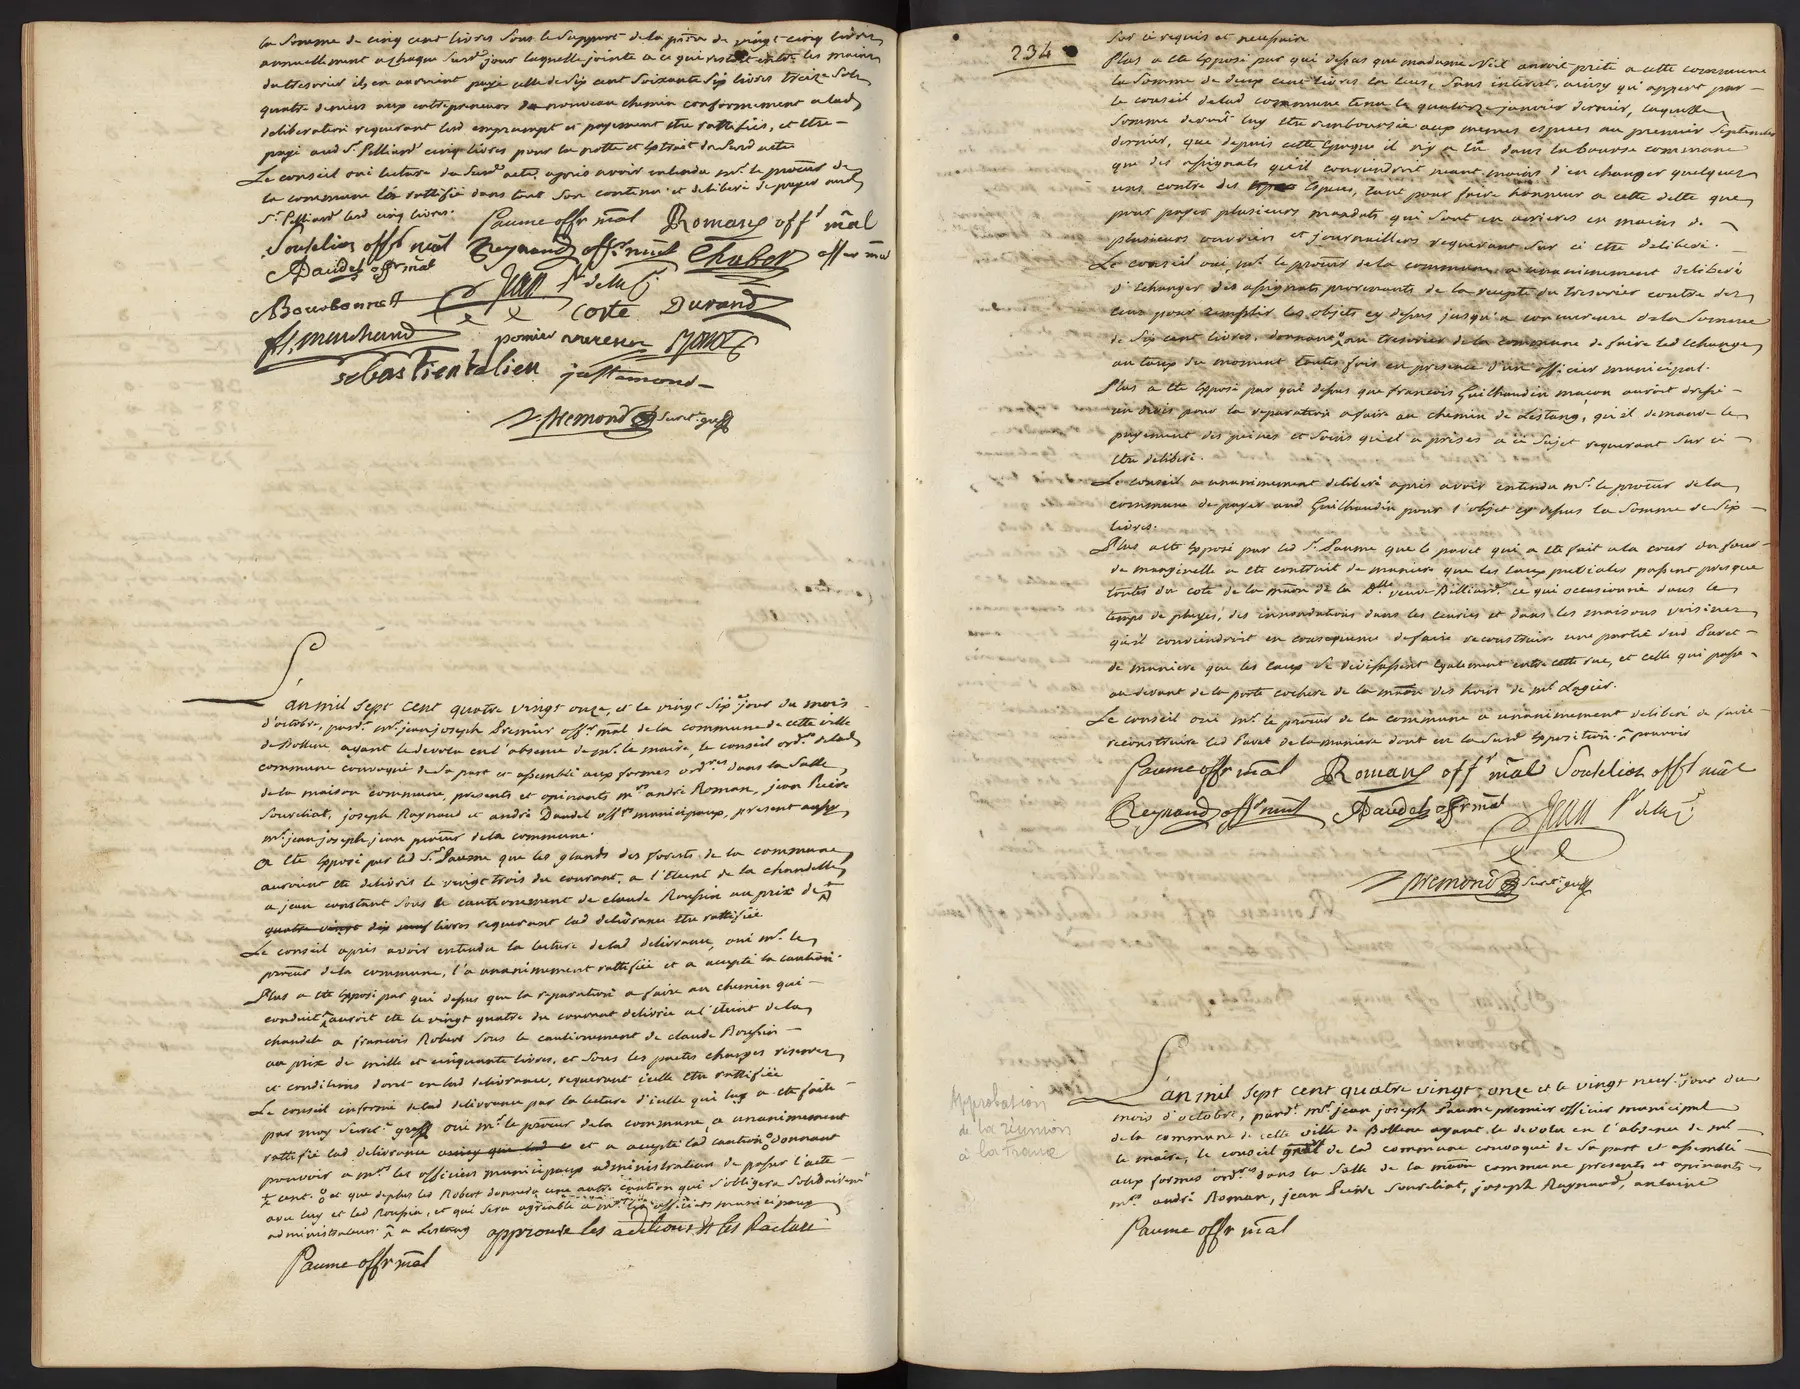 la somme de cinq cent livres sous le support de la pension de vingt cinq livres
annuellement a chaque susd. jour laquelle jointe a ce qui restoit entre les mains
du tresorier ils en auroient payé celle de six cent soixante six livres treize sols
quatre deniers aux entrepreneurs du nouveau chemin conformement a lad.
deliberation requerant led. emprumpt et payement etre rattifiés, et etre
payé aud. Sr. Pelliard cinq livres pour la notte et extrait du susd. acte
Le conseil oui lecture du susd. acte, apres avoir entendu mr. le procur. de
la commune l'a rattifié dans tout son contenu et deliberé de payer aud.
Sr. Pelliard lesd. cinq livres.
Paume offr mãl Romans offr mãl
Soulelian offr mãl Reynaud offr mãl Chabot offier mãl
Daudel offr mãl
Bourbonnet Jean Pr de la C.
Coste Durand
f. marchand
sebastien talien j. allemond
Aremond secret. greff.
L'an mil sept cent quatre vingt onze, et le vingt six.e jour du mois
d'octobre, pard. mr. jean joseph Premier offr. mãl de la commune de cette ville
de Bollene ayant le devolu en l'absence de mr. le maire, le conseil ord.re de lad.
commune convoqué de sa part et assemblé aux formes ord.res dans la salle
de la maison commune, presents et opinants mrs andré Roman, jean Pierre
Soureliat, joseph Raynaud et andré Daudel offrs municipaux, present aussy
mr. jean joseph jean procur. de la commune.
A eté exposé par led. Sr. Paume que les glands des forests de la commune
auroient eté delivrés le vingt trois du courant, a l'eteint de la chandelle
a jean constant sous le cautionement de claude Roussin au prix de +
quatre vingt dix neuf livres requerant lad. delivrance etre rattifiée
Le conseil apres avoir entendu la lecture de lad. delivrance, oui mr. le
procur. de la commune, l'a unanimement rattifiée et a accepté la caution.
Plus a eté exposé par qui dessus que la reparation a faire au chemin qui
conduit + auroit eté le vingt quatre du courant delivrée a l'eteint de la
chandele a francois Robert sous le cautionement de claude Roussin
au prix de mille et cinquante livres, et sous les pactes charges reserves
et conditions dont en lad. delivrance, requerant icelle etre rattifiée
Le conseil informé de lad. delivrance par la lecture d'icelle qui luy a eté faite
par moy secret. greff. oui mr. le procur. de la commune, a unanimement
rattifié lad. delivrance et a accepté lad. caution donnant
pouvoir a mrs les officiers municipaux administrateurs de passer l'acte
+ cent. et que de plus led. Robert donnera une autre caution qui s'obligera solidairement
avec luy et led. Roussin, et qui sera agréable a mrs les officiers municipaux
administrateurs. + a Lestang approuve les aditions et les Racture
Paume offr mãl
234
sur ce requis et necessaire
Plus a eté exposé par qui dessus que madame Neil auroit prêté a cette commune
la somme de deux cent livres en ecus, sans interet, ainsy qu'appert par
le conseil de lad. commune tenu le quatorze janvier dernier, laquelle
somme devoit luy etre remboursée aux memes especes au premier Septembre
dernier, que depuis cette epoque il n'y a eû dans la bourse commune
que des assignats qu'il conviendroit neant moins d'en changer quelques
uns contre des especes, tant pour faire honneur a cette dette que
pour payer plusieurs mandats qui sont en arrieres en mains de
plusieurs ouvriers et journaillers requerant sur ce etre deliberé.
Le conseil oui mr. le procur. de la commune a unanimement deliberé
d'echanger des assignats provenants de la recepte du tresorier contre des
ecus pour remplir les objets cy dessus jusqu'a concurrence de la somme
de six cent livres, donnant au tresorier de la commune de faire led. echange
au taux du moment toutes fois en presence d'un officier municipal.
Plus a eté exposé par qui dessus que francois Guilhaudin maçon auroit dressé
un devis pour la reparation a faire au chemin de Lestang, qu'il demande le
payement des peines et soins qu'il a prises a ce sujet requerant sur ce
etre deliberé.
Le conseil a unanimement deliberé apres avoir entendu mr. le procur. de la
commune de payer aud. Guilhaudin pour l'objet cy dessus la somme de six
livres.
Plus a eté exposé par led. Sr. Paume que le pavet qui a eté fait a la cour du four
de manginelle a eté contruit de maniere que les eaux pluviales passent presque
toutes du coté de la maon de la Dlle veuve Billiard, ce qui occasionne dans le
temps de pluyes, des innondations dans les ecuries et dans les maisons voisines
qu'il conviendroit en consequence de faire reconstruire une partie dud. Pavet
de maniere que les eaux se divisassent egalement entre cette rue, et celle qui passe
au devant de la porte cochere de la maon des hoirs de mr. Logier.
Le conseil oui mr. le procur. de la commune a unanimement deliberé de faire
reconstruire led. Pavet de la maniere dont en la susd. exposition. + pouvoir
Paume offr mãl Romans offr mãl Soulelian offr mãl
Reynaud offr mãl Daudel offr mãl Jean Pr de la C.
Aremond secret. greff.
Approbation
de la réunion
à la France
L'an mil sept cent quatre vingt onze et le vingt neuf.e jour du
mois d'octobre, pard. mr. jean joseph Paume premier officier municipal
de la commune de cette ville de Bollene ayant le devolu en l'absence de mr.
le maire, le conseil gnãl de lad. commune convoqué de sa part et assemblé
aux formes ord.res dans la salle de la maon commune presents et opinants
mrs andré Roman, jean Pierre Soureliat, joseph Raynaud, antoine
Paume offr mãl